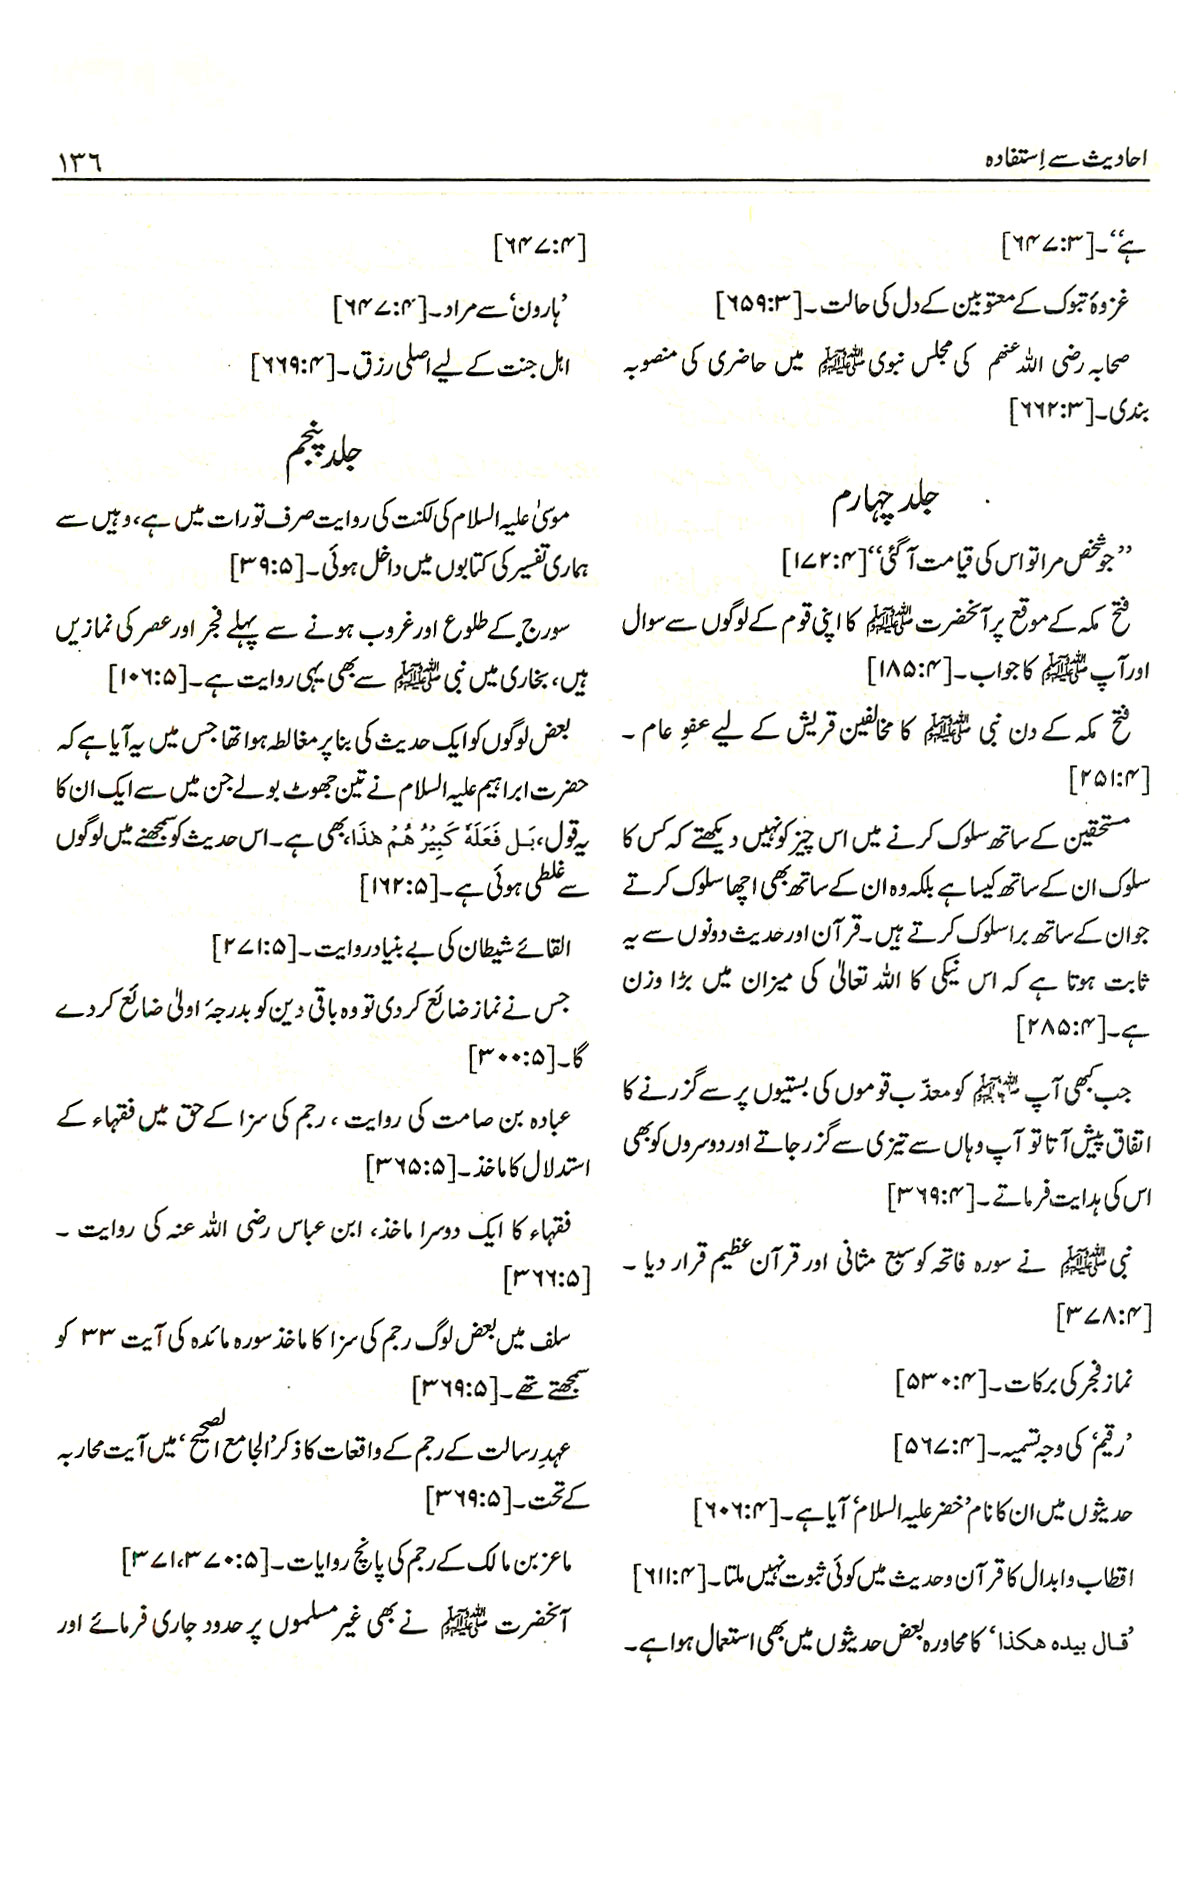 احادیث سے اِستفادہ
۱۳۶
ہے‘‘۔[۶۴۷:۳]
غزوۂ تبوک کے معتوبین کے دل کی حالت۔[۶۵۹:۳]
صحابہ رضی اللہ عنھم کی مجلس نبوی ﷺ میں حاضری کی منصوبہ
بندی۔[۶۶۲:۳]
جلد چہارم
’’جو شخص مرا تو اس کی قیامت آ گئی‘‘[۱۷۲:۴]
فتح مکہ کے موقع پر آنحضرت ﷺ کا اپنی قوم کے لوگوں سے سوال
اور آپ ﷺ کا جواب۔[۱۸۵:۴]
فتح مکہ کے دن نبی ﷺ کا مخالفین قریش کے لیے عفوِ عام۔
[۲۵۱:۴]
مستحقین کے ساتھ سلوک کرنے میں اس چیز کو نہیں دیکھتے کہ کس کا
سلوک ان کے ساتھ کیسا ہے بلکہ وہ ان کے ساتھ بھی اچھا سلوک کرتے
جو ان کے ساتھ برا سلوک کرتے ہیں۔ قرآن اور حدیث دونوں سے یہ
ثابت ہوتا ہے کہ اس نیکی کا اللہ تعالیٰ کی میزان میں بڑا وزن
ہے۔[۲۸۵:۴]
جب کبھی آپ ﷺ کو معذّب قوموں کی بستیوں پر سے گزرنے کا
اتفاق پیش آتا تو آپ وہاں سے تیزی سے گزر جاتے اور دوسروں کو بھی
اس کی ہدایت فرماتے۔[۳۶۹:۴]
نبی ﷺ نے سورہ فاتحہ کو سبع مثانی اور قرآن عظیم قرار دیا۔
[۳۷۸:۴]
نماز فجر کی برکات۔[۵۳۰:۴]
’رقیم‘ کی وجہ تسمیہ۔[۵۶۷:۴]
حدیثوں میں ان کا نام ’خضر علیہ السلام‘ آیا ہے۔[۶۰۶:۴]
اقطاب و ابدال کا قرآن و حدیث میں کوئی ثبوت نہیں ملتا۔[۶۱۱:۴]
’قال بیدہ ھکذا‘ کا محاورہ بعض حدیثوں میں بھی استعمال ہوا ہے۔
[۶۴۷:۴]
’ہارون‘ سے مراد۔[۶۴۷:۴]
اہل جنت کے لیے اصلی رزق۔[۶۶۹:۴]
جلد پنجم
موسیٰ علیہ السلام کی لکنت کی روایت صرف تورات میں ہے، وہیں سے
ہماری تفسیر کی کتابوں میں داخل ہوئی۔[۳۹:۵]
سورج کے طلوع اور غروب ہونے سے پہلے فجر اور عصر کی نمازیں
ہیں، بخاری میں نبی ﷺ سے بھی یہی روایت ہے۔[۱۰۶:۵]
بعض لوگوں کو ایک حدیث کی بنا پر مغالطہ ہوا تھا جس میں یہ آیا ہے کہ
حضرت ابراہیم علیہ السلام نے تین جھوٹ بولے جن میں سے ایک ان کا
یہ قول، بَل فَعَلَهٗ كَبِيْرُ هُمْ هٰذَا، بھی ہے۔ اس حدیث کو سمجھنے میں لوگوں
سے غلطی ہوئی ہے۔[۱۶۲:۵]
القائے شیطان کی بے بنیاد روایت۔[۲۷۱:۵]
جس نے نماز ضائع کر دی تو وہ باقی دین کو بدرجۂ اولیٰ ضائع کر دے
گا۔[۳۰۰:۵]
عبادہ بن صامت کی روایت، رجم کی سزا کے حق میں فقہاء کے
استدلال کا ماخذ۔[۳۶۵:۵]
فقہاء کا ایک دوسرا ماخذ، ابن عباس رضی اللہ عنہ کی روایت۔
[۳۶۶:۵]
سلف میں بعض لوگ رجم کی سزا کا ماخذ سورہ مائدہ کی آیت ۳۳ کو
سمجھتے تھے۔[۳۶۹:۵]
عہدِ رسالت کے رجم کے واقعات کا ذکر ’الجامع الصحیح‘ میں آیت محاربہ
کے تحت۔[۳۶۹:۵]
ماعز بن مالک کے رجم کی پانچ روایات۔[۳۷۱،۳۷۰:۵]
آنحضرت ﷺ نے بھی غیر مسلموں پر حدود جاری فرمائے اور